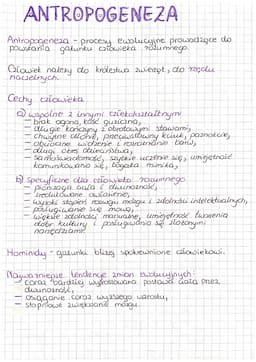 ANTROPOGENEZA
Antropogeneza - procesy ewolucyjne prowadzące do
powstania gatunku człowieka rozumnego.
Człowiek należy do królestwa zwierząt, do rzędu
naczelnych.
Cechy człowieka
a) wspólne z innymi człekokształtnymi
- brak ogona, kość guziczna,
- długie kończyny z obrotowymi stawami,
- chwytne dłonie, przeciwstawny kciuk, paznokcie,
- obuoczne widzenie i rozróżnianie barw,
- długi okres dzieciństwa,
- samoświadomość, szybkie uczenie się, umiejętność
komunikowania się, bogata mimika,
b) specyficzne dla człowieka rozumnego
- pionizacja ciała i dwunożność,
- zredukowane owłosienie,
- wysoki stopień rozwoju mózgu i zdolności intelektualnych,
- posługiwanie się mową,
- większe zdolności manualne, umiejętność tworzenia
dóbr kultury i posługiwania się złożonymi
narzędziami.
Hominidy - gatunki blisko spokrewnione człowiekowi.
Najważniejsze tendencje zmian ewolucyjnych:
- coraz bardziej wyprostowana postawa ciała przez
dwunożność,
- osiąganie coraz wyższego wzrostu,
- stopniowe zwiększanie mózgu.